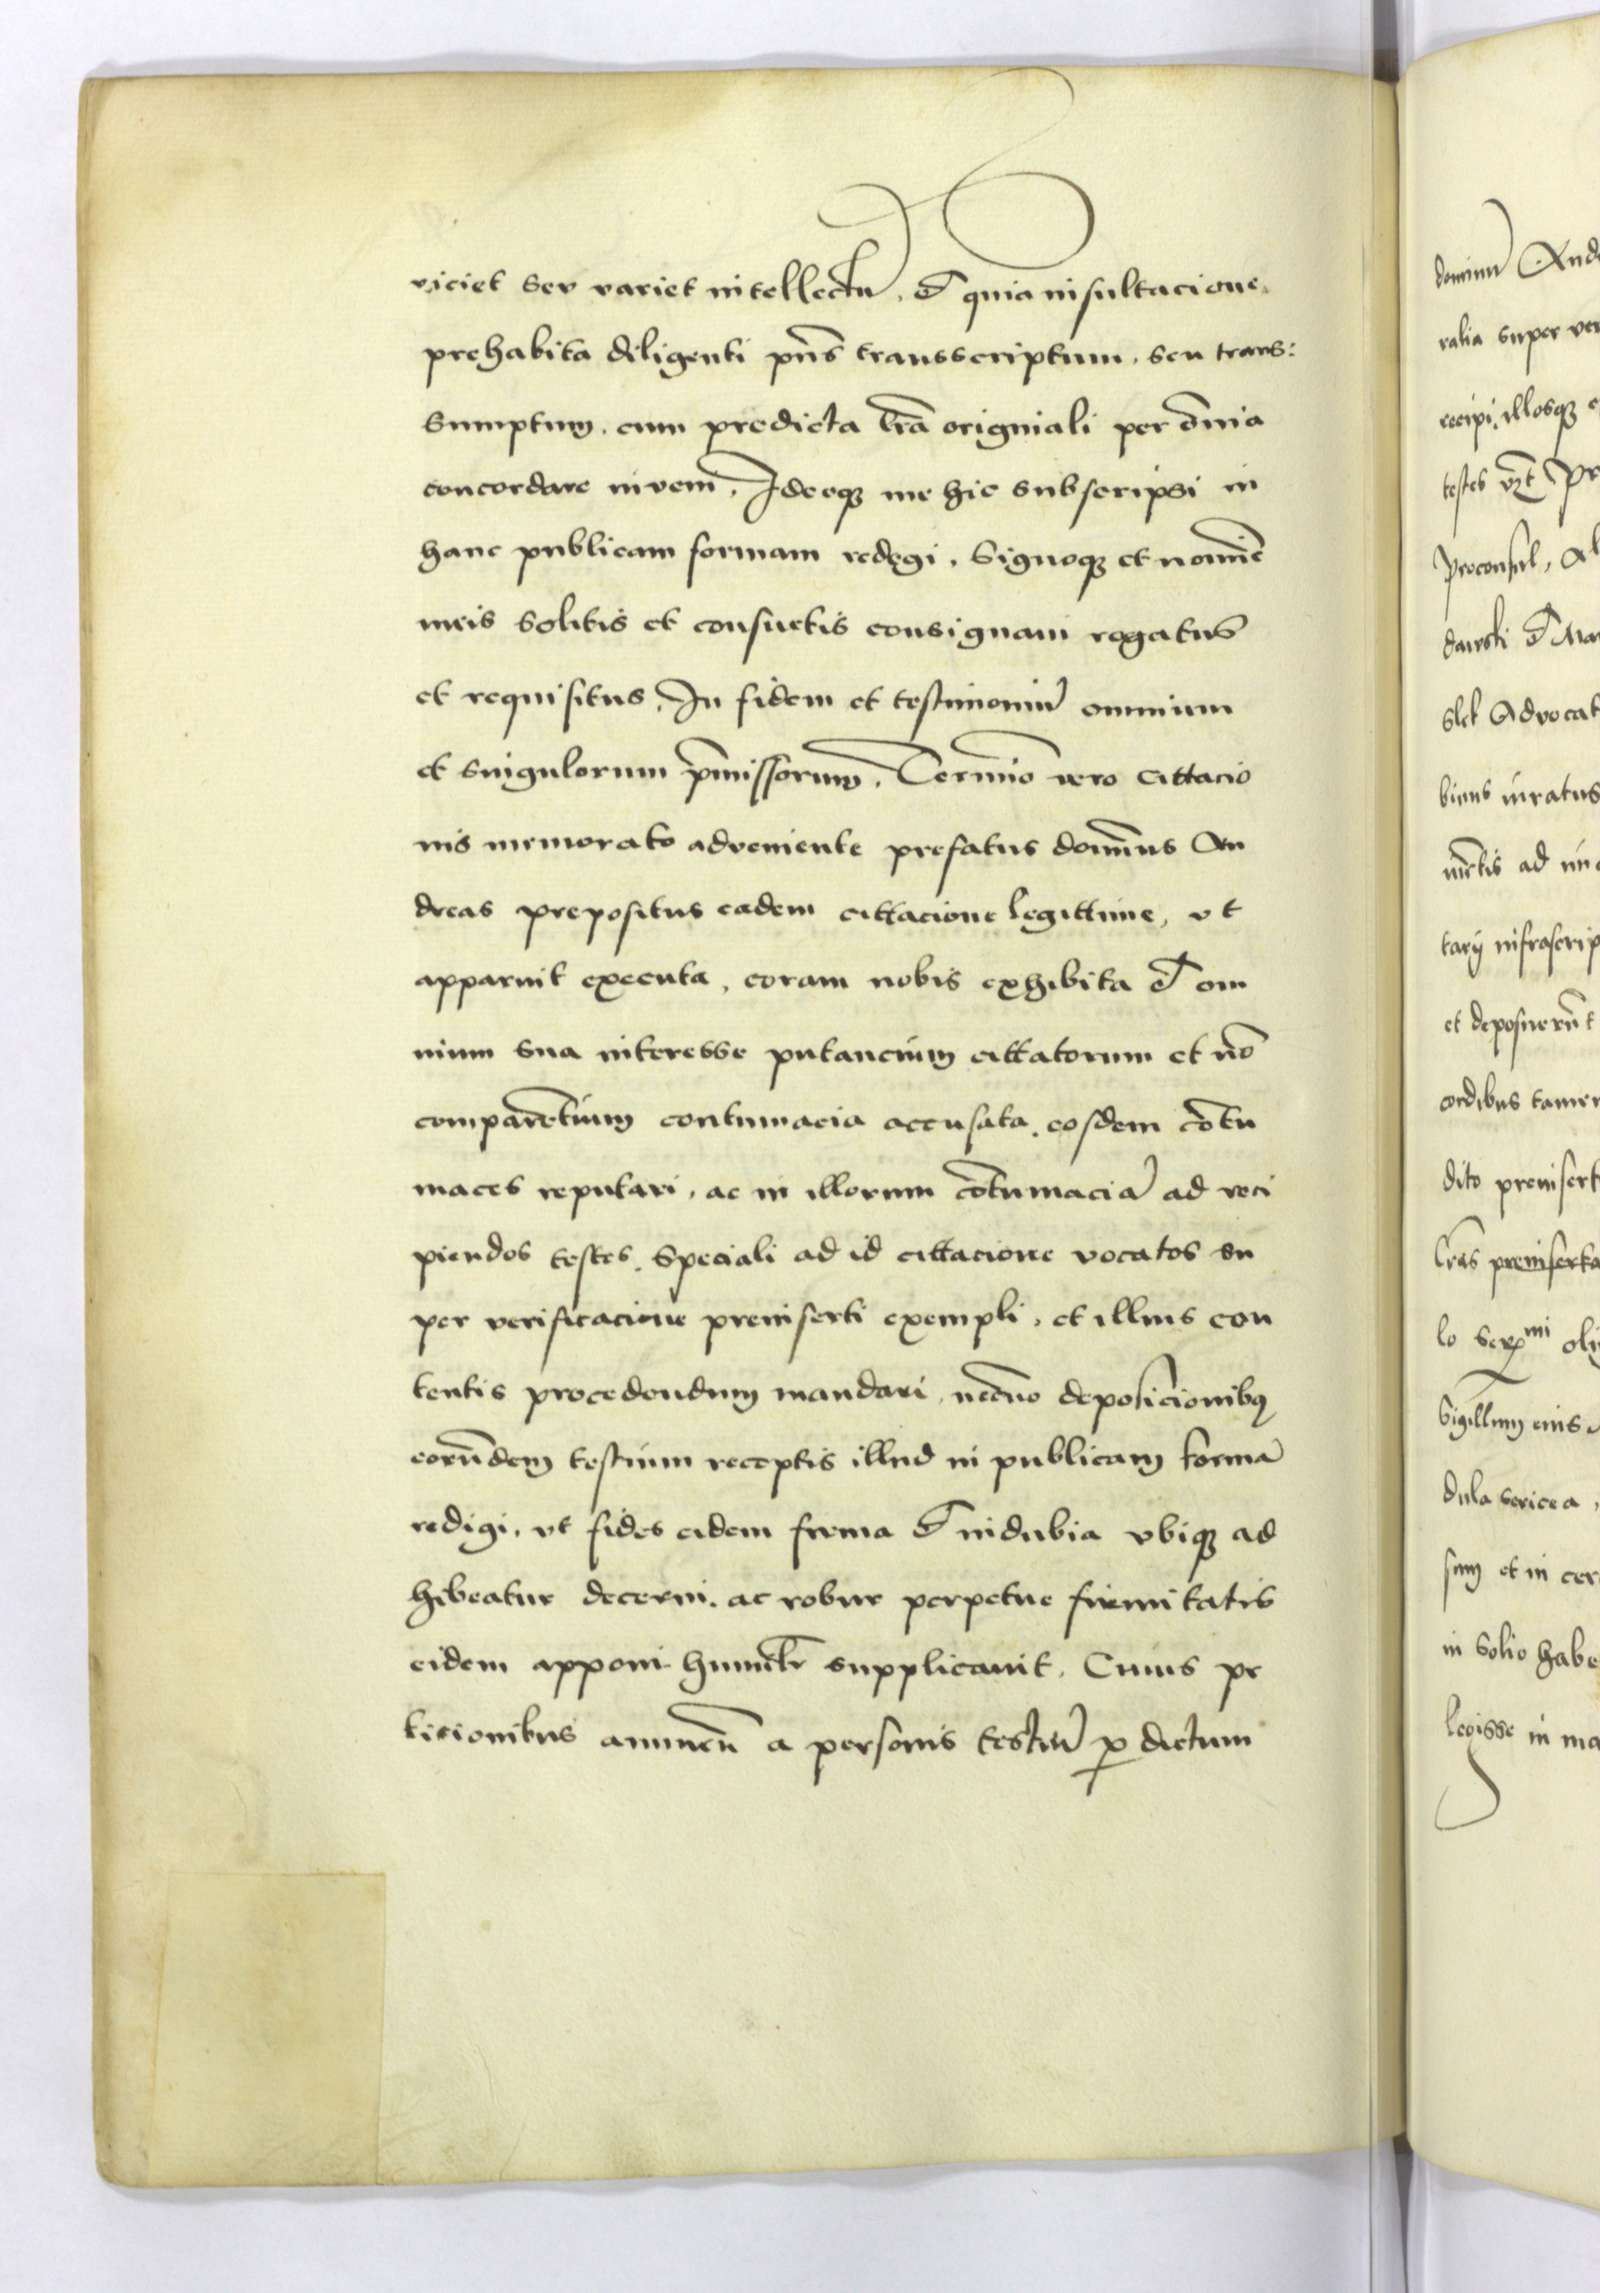 viciet seu variet intellectū, & quia insultacione
prehabita diligenti pn̄s transscriptum, seu trans:
sumptum, cum predicta lr̄a originiali per om̄ia
concordare inveni, Ideoqȝ me hic subscripsi in
hanc publicam formam redegi, Signoqȝ et nomīe
meis solitis et consuetis consignavi rogatus
et requisitus, In fidem et testimoniū omnium
et singulorum p̄missorum, Termīo vero cittacio
nis memorato adveniente prefatus domīnus An
dreas prepositus eadem cittacione legittime, vt
apparuit executa, coram nobis exhibita & om
nium sua interesse putancium cittatorum et nō
comparēntium contumacia accusata, eosdem cōtu
maces reputari, ac in illorum cōtumaciā ad reci
piendos testes, speciali ad id cittacione vocatos su
per verificacione preinserti exempli, et illius con
tentis procedendum mandari, necno deposicionibȝ
eorūdem testium receptis illud in publicam formā
redigi, vt fides eidem firma & indubia vbiqȝ ad
hibeatur decerni, ac robur perpetue firmitatis
eidem apponi humilr̄ supplicavit, Cuius pe
ticionibus annuen̄ a personis testiū ꝑ dictum
dominū And
ralia super ver
recipi, illosqȝ e
testes vꝫt Pr
proconsul, Al
dawski & Mar
slet Advocat
binus iuratus
ad
tarij infrascrip
et deposuerūt
cordibus tamen
dito preinsert
lr̄as preinserta
lo serꝫmi oli
Sigillum eius
dula sericea,
sum et in cer
in solio habe
legisse in ma